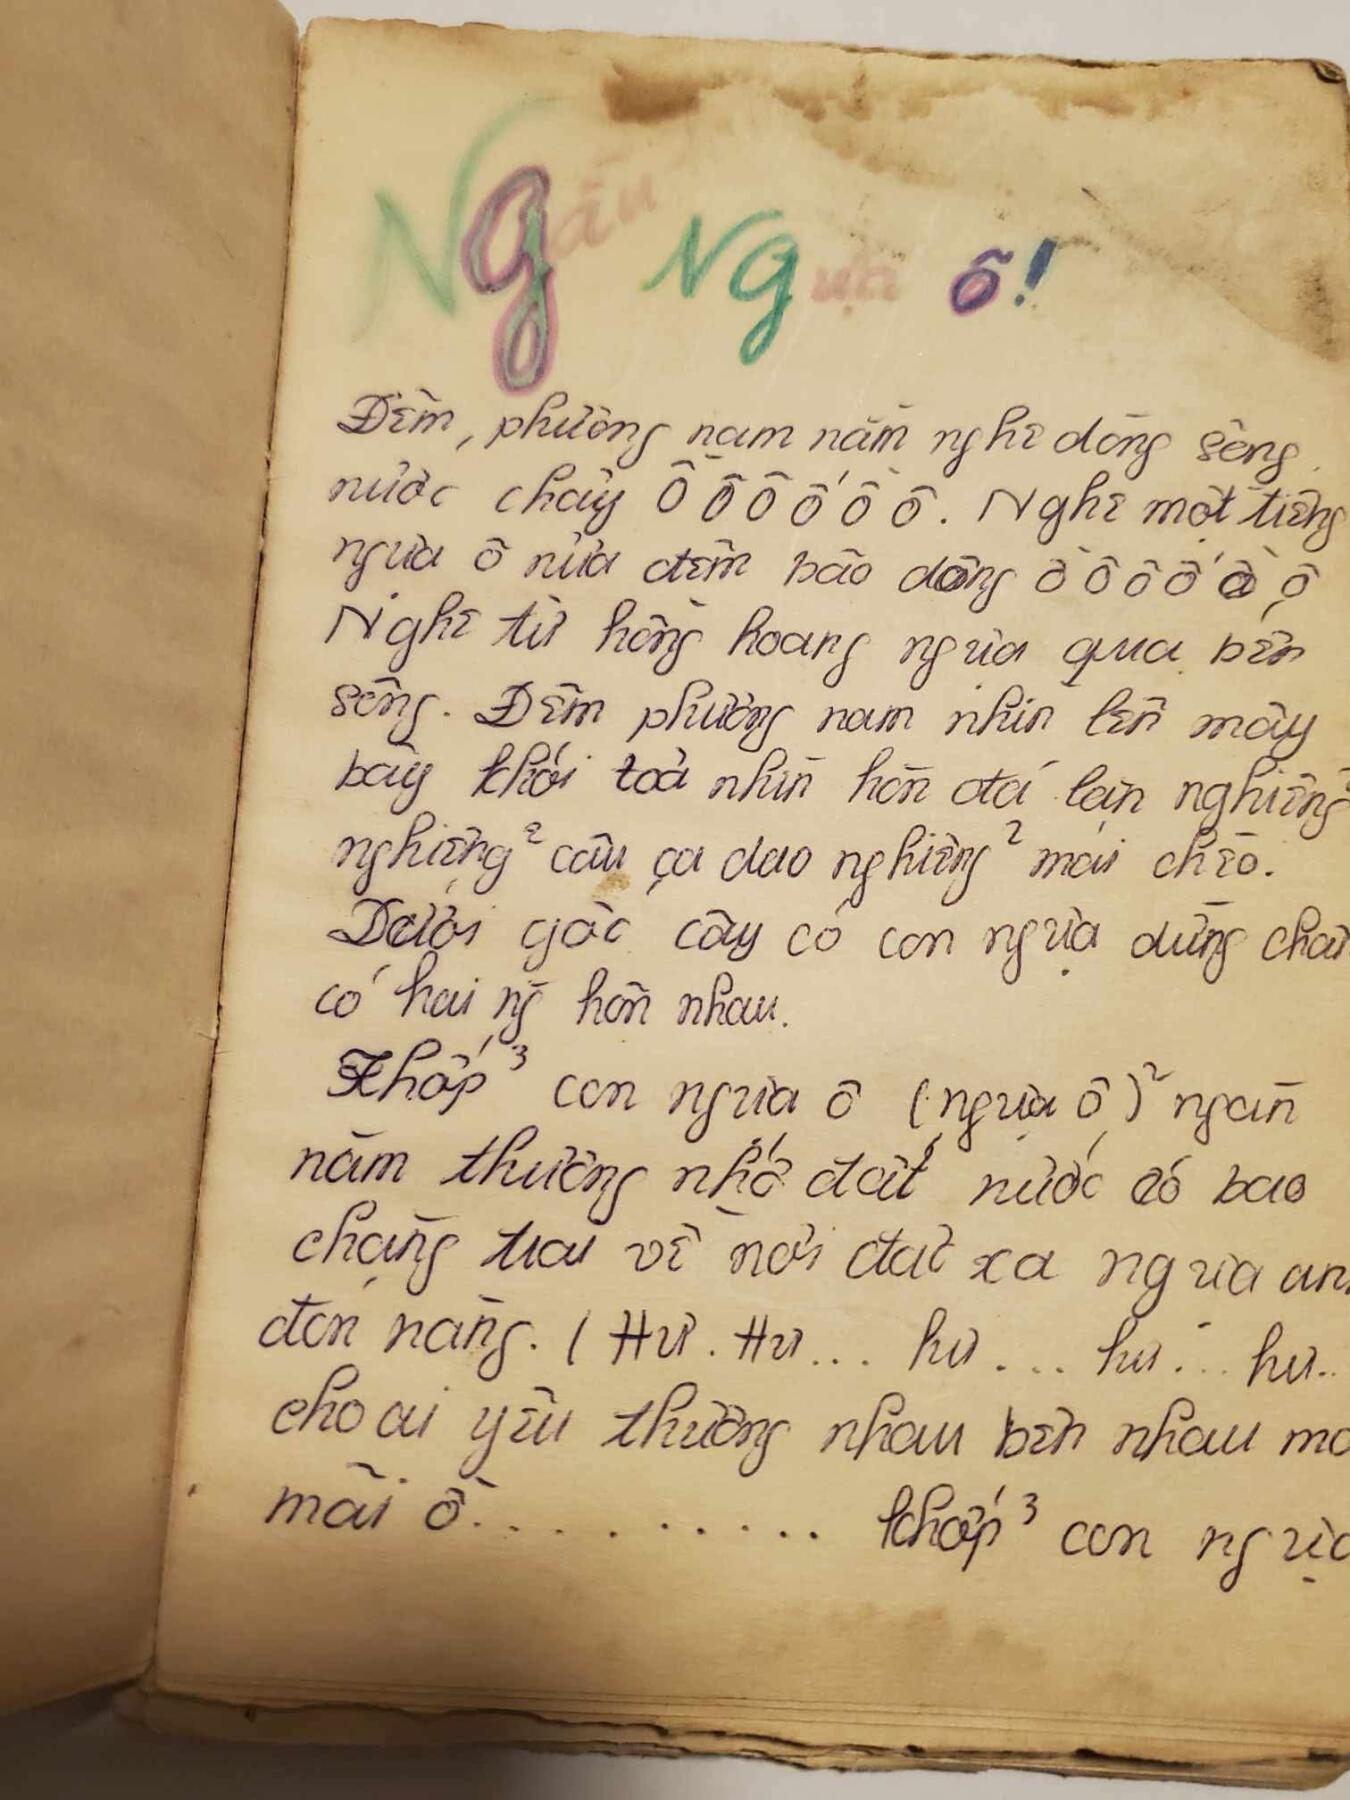 Ngẫu Ngựa ô!
Đêm, phương nam nằm nghe dòng sông
nước chảy Ô Ồ Ô Ố Ồ Ô. Nghe một tiếng
ngựa ô nửa đêm bão dông ồ ô ô ố ồ ộ
Nghe từ hồng hoang ngựa qua bến
sông. Đêm phương nam nhìn lên mây
bay khói toả nhìn hòn đá lặn nghiêng²
nghiêng² câu ca dao nghiêng² mái chèo.
Dưới gốc cây có con ngựa dừng chân
có hai ng̃ hôn nhau.
Khớp³ con ngựa ô (ngựa ô)² ngàn
năm thương nhớ đất nước có bao
chàng trai về nơi đất xa ngựa anh
đón nàng. (Hư. Hư... hư... hư... hư..
cho ai yêu thương nhau bên nhau
mãi ồ.......... khớp³ con ngựa